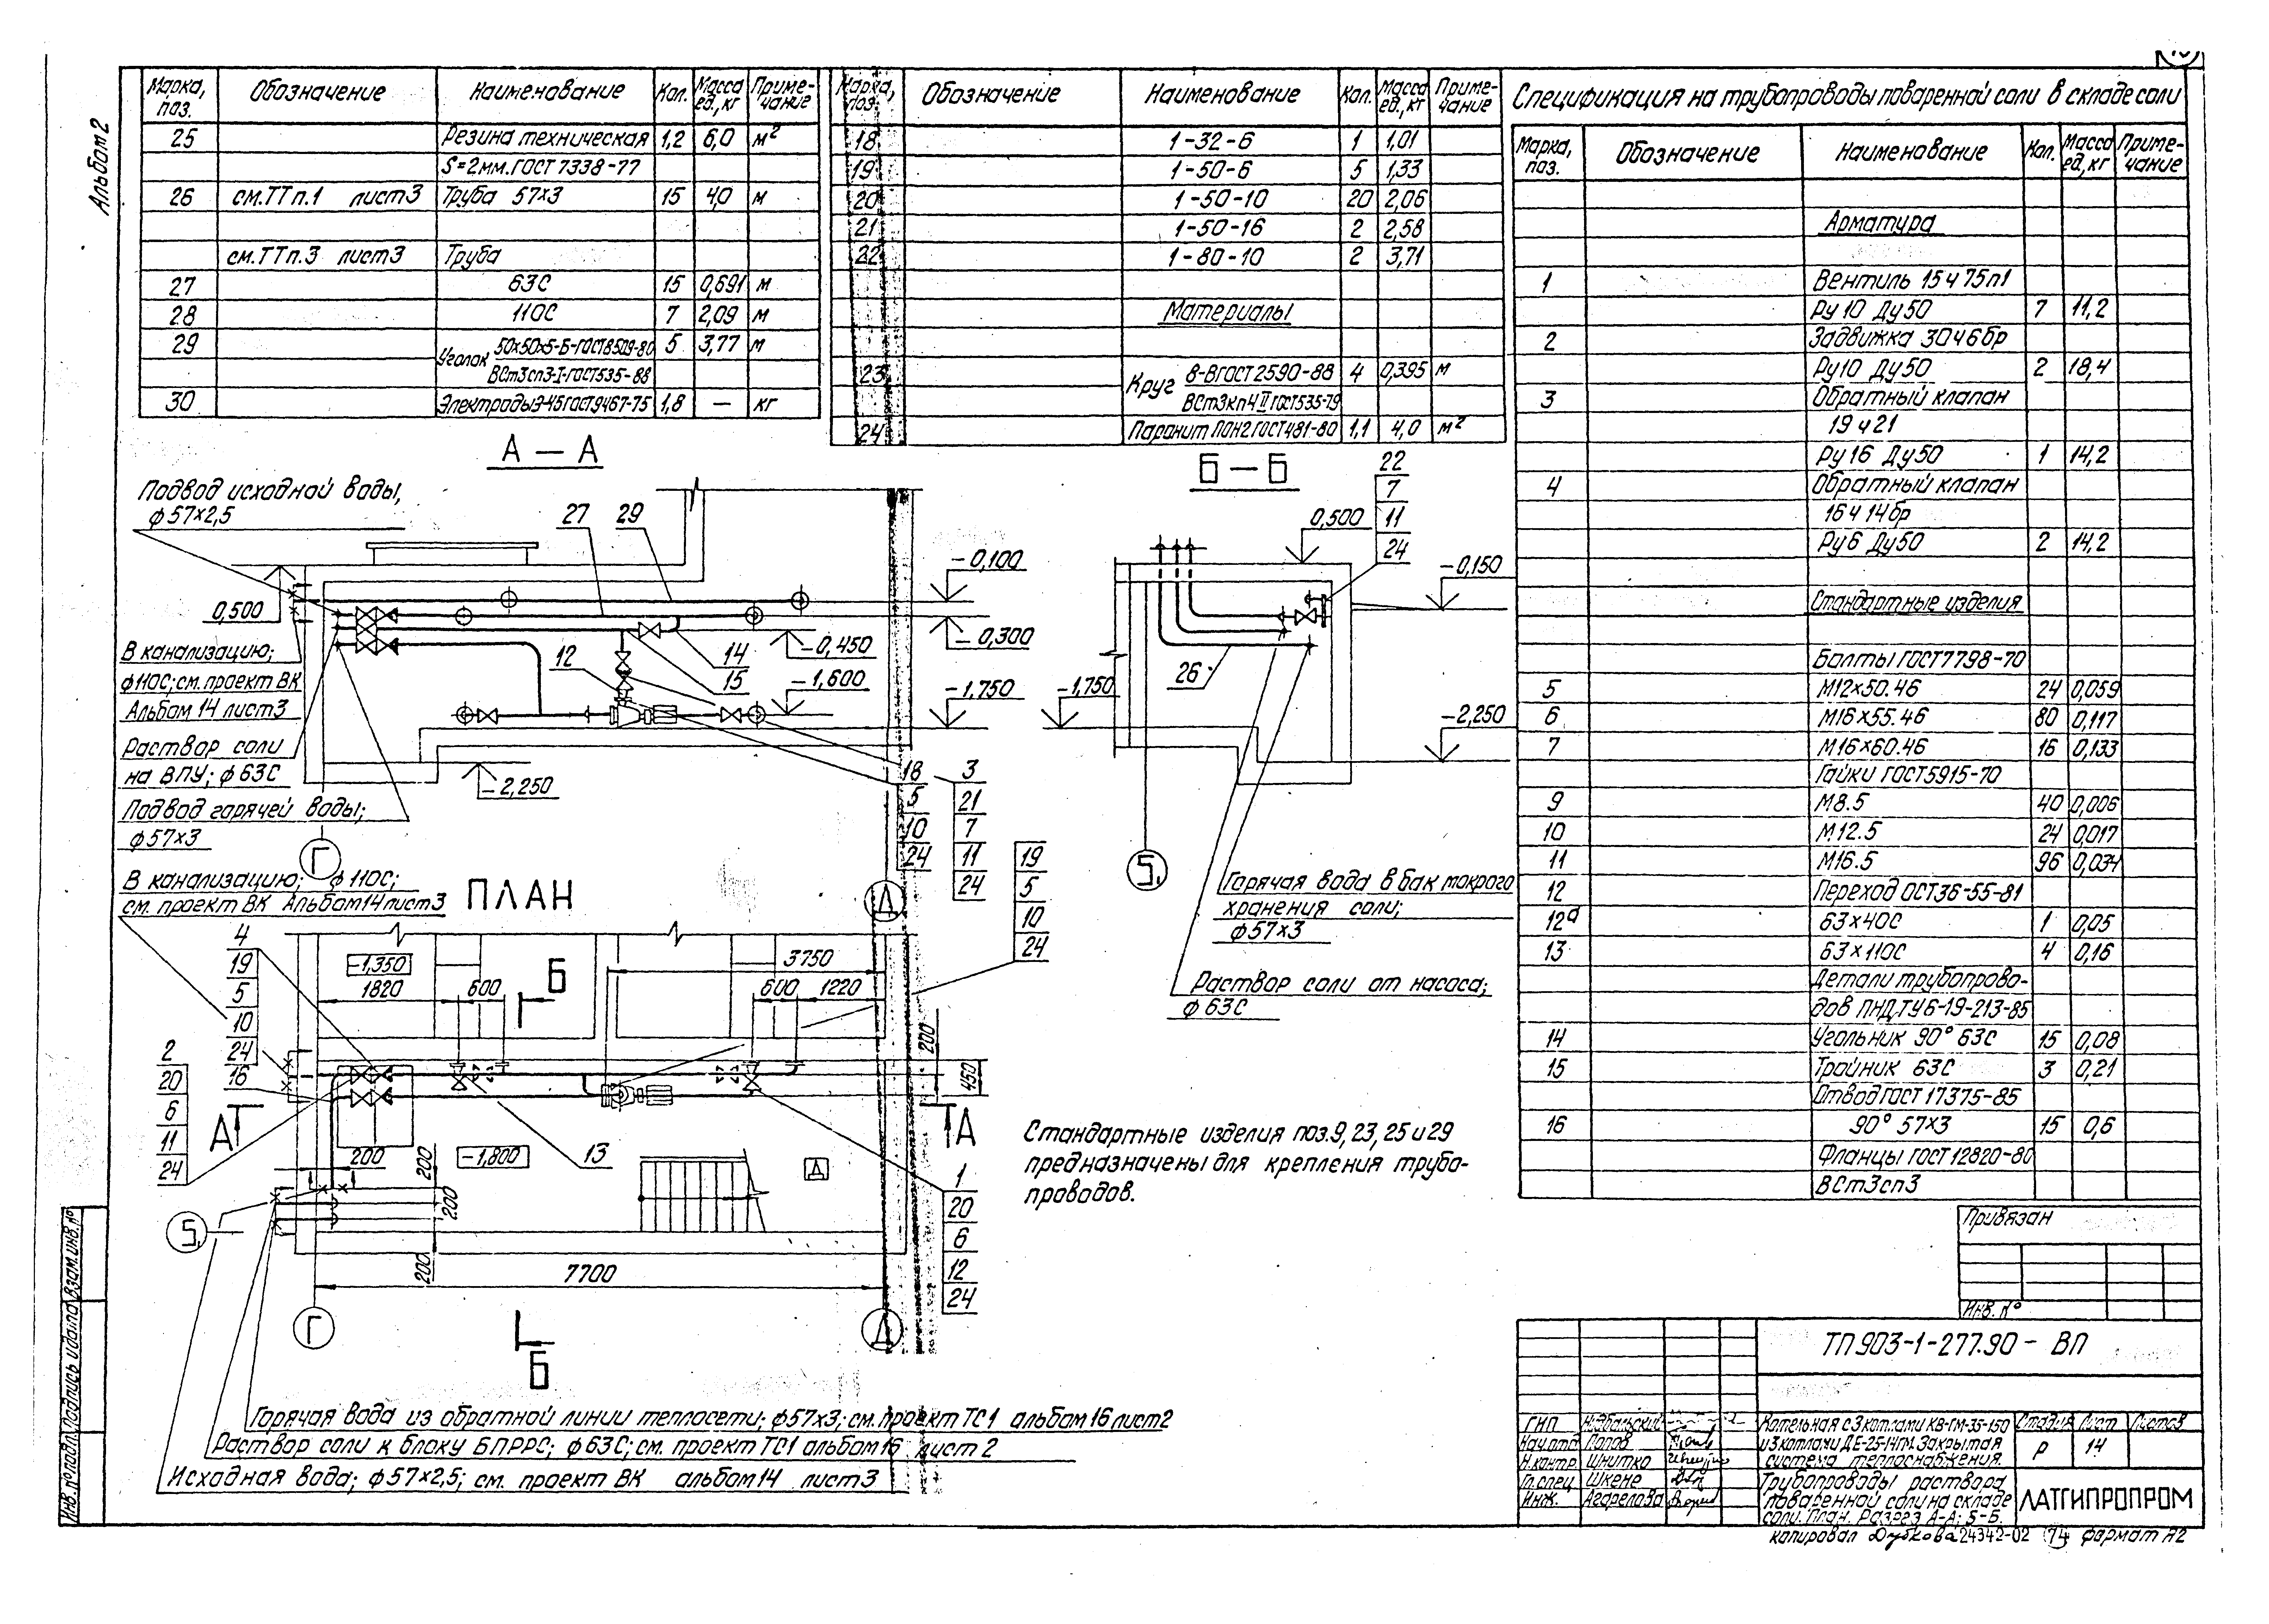 Альбом 2
Марка, поз. Обозначение Наименование Кол. Масса ед., кг Приме-чание
25 Резина техническая 1,2 6,0 м²
S=2мм. ГОСТ 7338-77
26 см. ТТ п.1 лист 3 Труба 57х3 15 4,0 м
см. ТТ п.3 лист 3 Труба
27 63С 15 0,691 м
28 110С 7 2,09 м
29 Уголок 50х50х5-Б-ГОСТ8509-80 5 3,77 м
ВСт3сп3-I-ГОСТ535-88
30 Электроды Э-45 ГОСТ9467-75 1,8 — кг
Марка, поз. Обозначение Наименование Кол. Масса ед., кг Приме-чание
18 1-32-6 1 1,01
19 1-50-6 5 1,33
20 1-50-10 20 2,06
21 1-50-16 2 2,58
22 1-80-10 2 3,71
Материалы
23 Круг 8-В ГОСТ 2590-88 4 0,395 м
ВСт3кп4 II ГОСТ535-79
24 Паронит ПОН2 ГОСТ481-80 1,1 4,0 м²
Спецификация на трубопроводы поваренной соли в складе соли
Марка, поз. Обозначение Наименование Кол. Масса ед., кг Приме-чание
Арматура
1 Вентиль 15ч75п1
Ру 10 Ду 50 7 11,2
2 Задвижка 30ч6бр
Ру10 Ду50 2 18,4
3 Обратный клапан
19ч21
Ру16 Ду50 1 14,2
4 Обратный клапан
16ч14бр
Ру6 Ду50 2 14,2
Стандартные изделия
Болты ГОСТ7798-70
5 М12х50.46 24 0,059
6 М16х55.46 80 0,117
7 М16х60.46 16 0,133
Гайки ГОСТ5915-70
9 М8.5 40 0,006
10 М12.5 24 0,017
11 М16.5 96 0,034
12 Переход ОСТ36-55-81
12а 63х40С 1 0,05
13 63х110С 4 0,16
Детали трубопрово-
дов ПНД ТУ6-19-213-85
14 Угольник 90° 63С 15 0,08
15 Тройник 63С 3 0,21
Отвод ГОСТ 17375-85
16 90° 57х3 15 0,6
Фланцы ГОСТ 12820-80
ВСт3сп3
А — А
Подвод исходной воды,
ф57х2,5
27 29
0,500
-0,100
-0,300
-0,450
-1,600
-1,750
-2,250
12 14 15
В канализацию;
ф110С; см. проект ВК
Альбом 14 лист 3
Раствор соли
на ВПУ; ф63С
Подвод горячей воды;
ф57х3
18
5
10
24
3
21
7
11
24
19
5
10
24
Г
Д
Б — Б
22
7
11
24
0,500
-0,150
26
-1,750
-2,250
Горячая вода в бак мокрого
хранения соли;
ф57х3
Раствор соли от насоса;
ф63С
Б₁
ПЛАН
В канализацию; ф110С;
см. проект ВК Альбом 14 лист 3
4
19
5
10
24
16
2
20
6
11
24
-1,350
1820
600
Б
3750
600
1220
200
450
А
А
200
200
200
200
-1,800
13
Д
1
20
6
12
24
Б₁
7700
Г
Д
Б
Стандартные изделия поз. 9, 23, 25 и 29
предназначены для крепления трубо-
проводов.
Горячая вода из обратной линии теплосети; ф57х3; см. проект ТС1 альбом 16 лист 2
Раствор соли к блоку БПРРС; ф63С; см. проект ТС1 альбом 16 лист 2
Исходная вода; ф57х2,5; см. проект ВК альбом 14 лист 3
Инв. № подл. Подпись и дата Взам. инв. №
Привязан
Инв. №
ТП 903-1-277.90 - ВП
ГИП
Нач. отд. Попов
Н. контр. Шнитко
Гл. спец. Шкене
Инж. Агарелова
Котельная с 3 котлами КВ-ГМ-35-150
и 3 котлами ДЕ-25-14ГМ. Закрытая
система теплоснабжения.
Стадия Лист Листов
Р 14
Трубопроводы раствора
поваренной соли на складе
соли. План. Разрез А-А; Б-Б.
ЛАТГИПРОПРОМ
копировал Дубкова 24342-02 74 формат А2